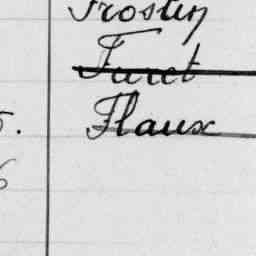 Frostin
Furet
5. Flaux
6